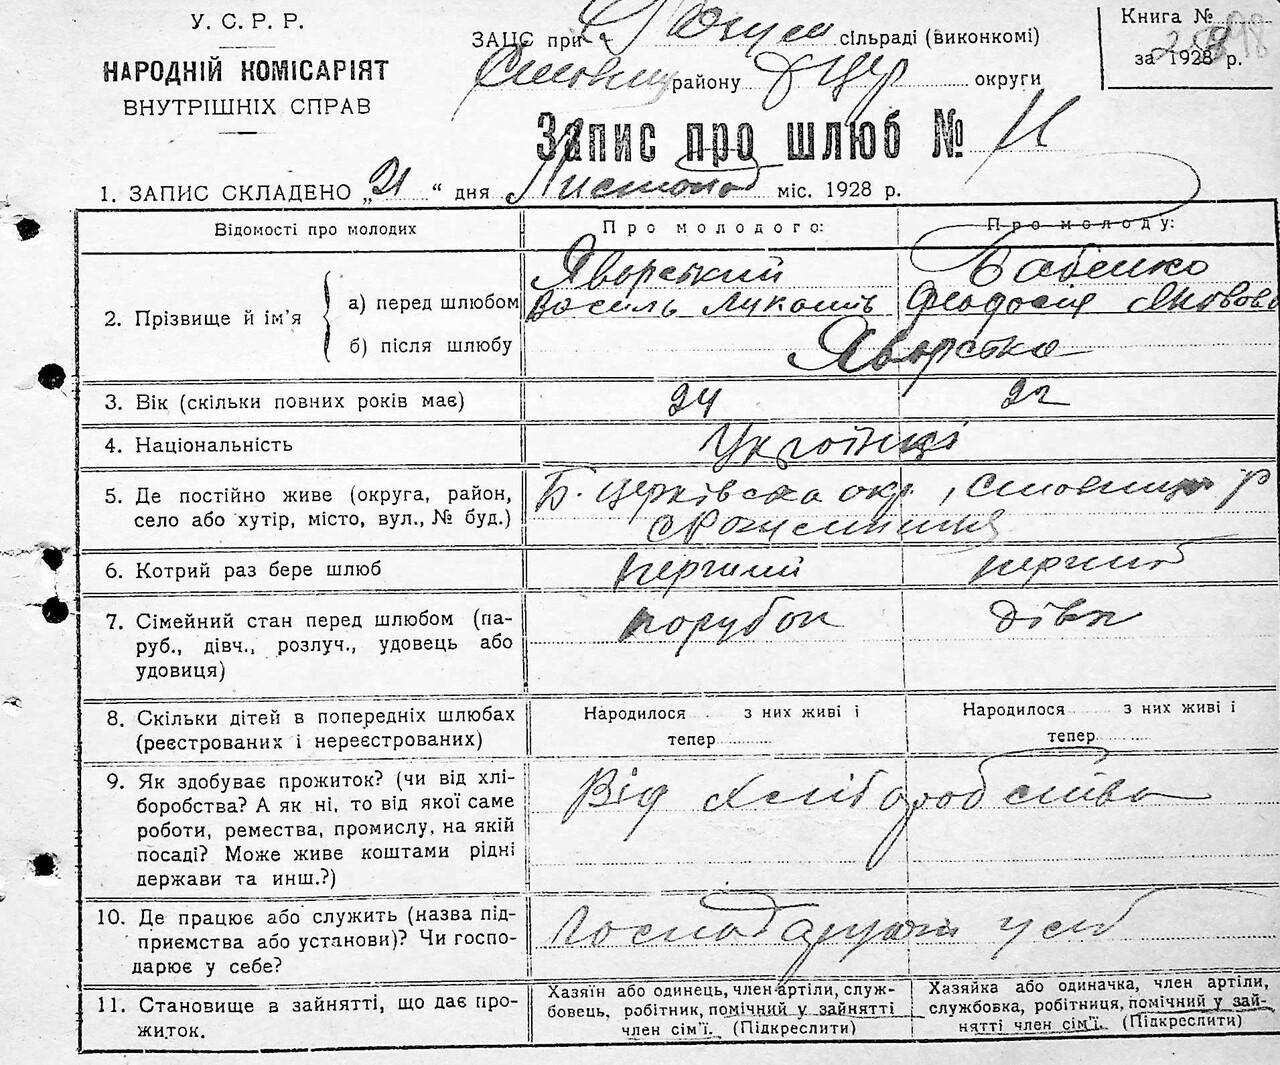 У. С. Р. Р.
НАРОДНІЙ КОМІСАРІЯТ
ВНУТРІШНІХ СПРАВ
ЗАЦС при сільраді (виконкомі)
району Б Цер округи
Книга №
за 1928 р.
Запис про шлюб №
1. ЗАПИС СКЛАДЕНО „21" дня Листопад міс. 1928 р.
Відомості про молодих Про молодого: Про молоду:
2. Прізвище й ім'я
а) перед шлюбом
б) після шлюбу
Яворський
Василь Лукашів
Бабенко
Феодосія Яковова
Яворська
3. Вік (скільки повних років має) 24 22
4. Національність Українці
5. Де постійно живе (округа, район,
село або хутір, місто, вул., № буд.)
Б. Церківська окр.,
6. Котрий раз бере шлюб перший перший
7. Сімейний стан перед шлюбом (па-
руб., дівч., розлуч., удовець або
удовиця)
порубок діва
8. Скільки дітей в попередніх шлюбах
(реєстрованих і нереєстрованих)
Народилося з них живі і
тепер
Народилося з них живі і
тепер
9. Як здобуває прожиток? (чи від хлі-
боробства? А як ні, то від якої саме
роботи, ремества, промислу, на якій
посаді? Може живе коштами рідні
держави та инш.?)
Від хліборобства
10. Де працює або служить (назва під-
приємства або установи)? Чи госпо-
дарює у себе?
11. Становище в зайнятті, що дає про-
житок.
Хазяїн або одинець, член артіли, служ-
бовець, робітник, помічний у зайнятті
член сім'ї. (Підкреслити)
Хазяйка або одиначка, член артіли,
службовка, робітниця, помічний у зай-
нятті член сім'ї. (Підкреслити)